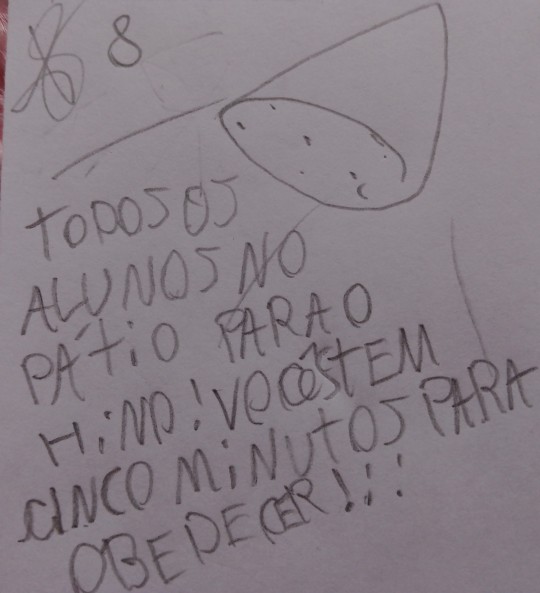 8
TODOS OS
ALUNOS NO
PÁTIO PARA O
HINO! VOCÊS TEM
CINCO MINUTOS PARA
OBEDECER!!!